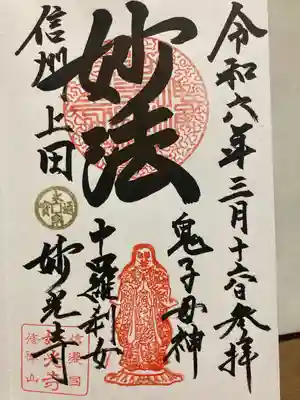 令和六年三月十六日参拝
鬼子母神
妙法
十羅刹女
信州上田
妙光寺